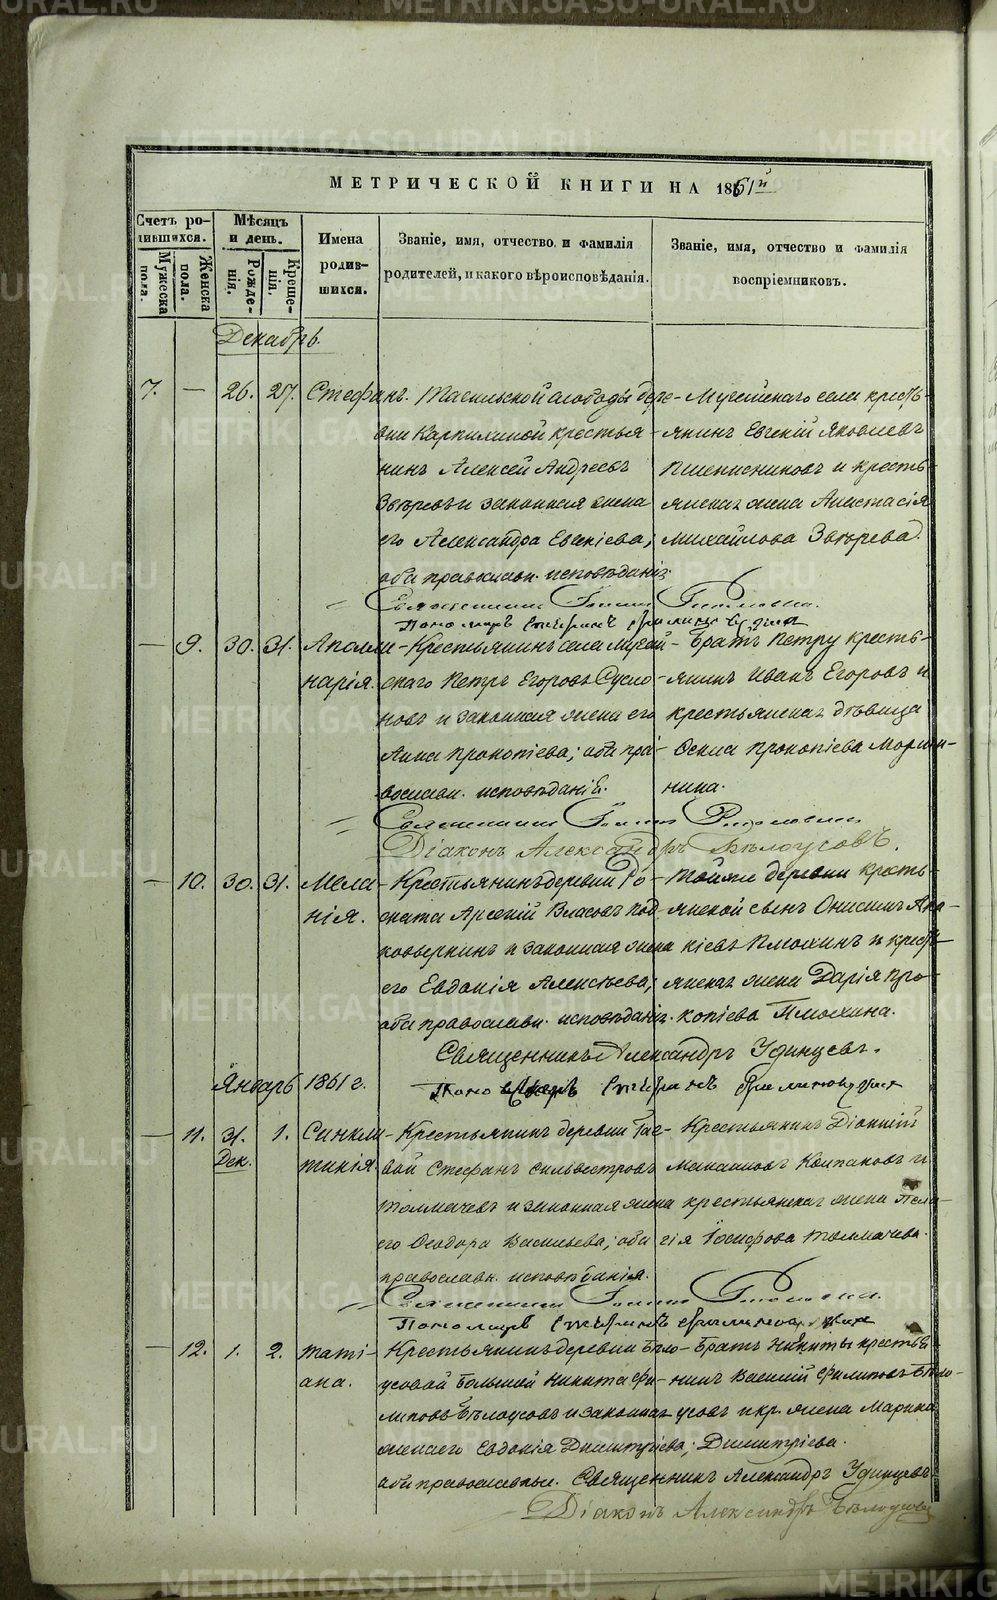 METRIKI.GASO-URAL.RU
МЕТРИЧЕСКОЙ КНИГИ НА 1861й
Счетъ родившихся.
Мужеска пола.
Женска пола.
Мѣсяцъ и день.
Рожденія.
Крещенія.
Имена родившихся.
Званіе, имя, отчество и фамилія родителей, и какого вѣроисповѣданія.
Званіе, имя, отчество и фамилія воспріемниковъ.
Декабрь.
7. — 26. 27. Стефанъ.
Тагильской слободы дере-
вни Карпихиной крестья-
нинъ Алексей Андреевъ
Звѣревъ и законная жена
его Александра
оба православн. исповѣданія.
крестья-
янинъ Евгеній Яковлевъ
и кресть-
янская жена Анастасія
Михайлова Звѣрева.
— 9. 30. 31. Аполли-
нарія.
Крестьянинъ села
Петръ Егоровъ Сусло-
новъ и законная жена его
Анна Прокопіева; оба пра-
вославн. исповѣданія.
Братъ Петру кресть-
янинъ Иванъ Егоровъ и
крестьянская дѣвица
Прокопіева
Діаконъ Александръ Бѣлоусовъ.
— 10. 30. 31. Мела-
нія.
Крестьянинъ деревни
Арсеній Власовъ Под-
коверкинъ и законная жена
его Евдокія Алексѣева;
оба православн. исповѣданія.
Тойже деревни кресть-
янской сынъ Онисимъ
Плюхинъ и кресть-
янская жена Дарія Про-
копіева Плюхина.
Священникъ Александръ Удинцевъ.
Январь 1861 г.
— 11. 31. 1. Синкли-
Дек. тикія.
Крестьянинъ деревни
Стефанъ Сильвестровъ
Толмачевъ и законная жена
его Ѳеодора Васильева; оба
православн. исповѣданія.
Крестьянинъ Діонисій
Колпаковъ и
крестьянская жена Пела-
гія Іосифова Толмачева.
— 12. 1. 2. Таті-
ана.
Крестьянинъ деревни Бѣло-
усовой Большой Никита Фи-
липовъ Бѣлоусовъ и законная
жена его Евдокія Димитріева;
оба православные.
Братъ Никиты крестья-
нинъ Василій Филиповъ Бѣло-
усовъ и кр. жена Марина
Димитріева.
Священникъ Александръ Удинцевъ
Діаконъ Александръ Бѣлоусовъ